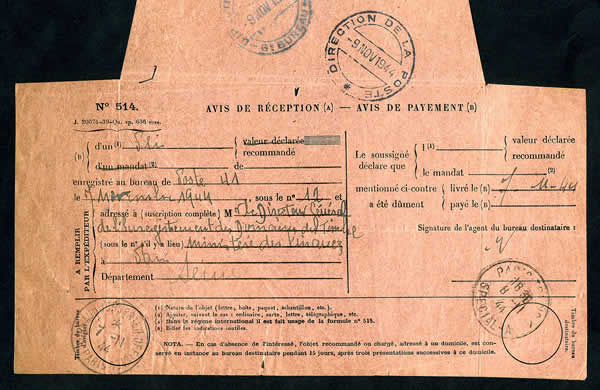 9 NOV 19
6e BUREAU
DIRECTION DE LA POSTE
-9 NOV 1944
No 514.
J. 20071-39-Qs. sp. 636 mm.
AVIS DE RÉCEPTION (A) — AVIS DE PAYEMENT (B)
(B) d'un (1) Pli valeur déclarée recommandé
d'un mandat (2) de
enregistré au bureau de Poste 41
le 7 Novembre 1944 sous le no 12 et
adressé à (suscription complète) M r le Directeur Général
de l'enregistrement des Domaines du Timbre
(sous le no s'il y'a lieu) Ministère des Finances
à Paris
Département Seine
A REMPLIR PAR L'EXPÉDITEUR
Le soussigné déclare que
(1) (A) valeur déclarée recommandé
le mandat (2)
mentionné ci-contre a été dûment
livré le (B) 7-11-44
payé le (B)
Signature de l'agent du bureau destinataire :
PARIS
18 30
8 - 11
44
SPECIAL A
Timbre du bureau d'origine.
Timbre du bureau destinataire.
(1) Nature de l'objet (lettre, boîte, paquet, échantillon, etc.).
(2) Ajouter, suivant le cas : ordinaire, carte, lettre, télégraphique, etc.
(A) Dans le régime international il est fait usage de la formule no 515.
(B) Biffer les indications inutiles.
NOTA. — En cas d'absence de l'intéressé, l'objet recommandé ou chargé, adressé à un domicile, est conservé en instance au bureau destinataire pendant 15 jours, après trois présentations successives à ce domicile.